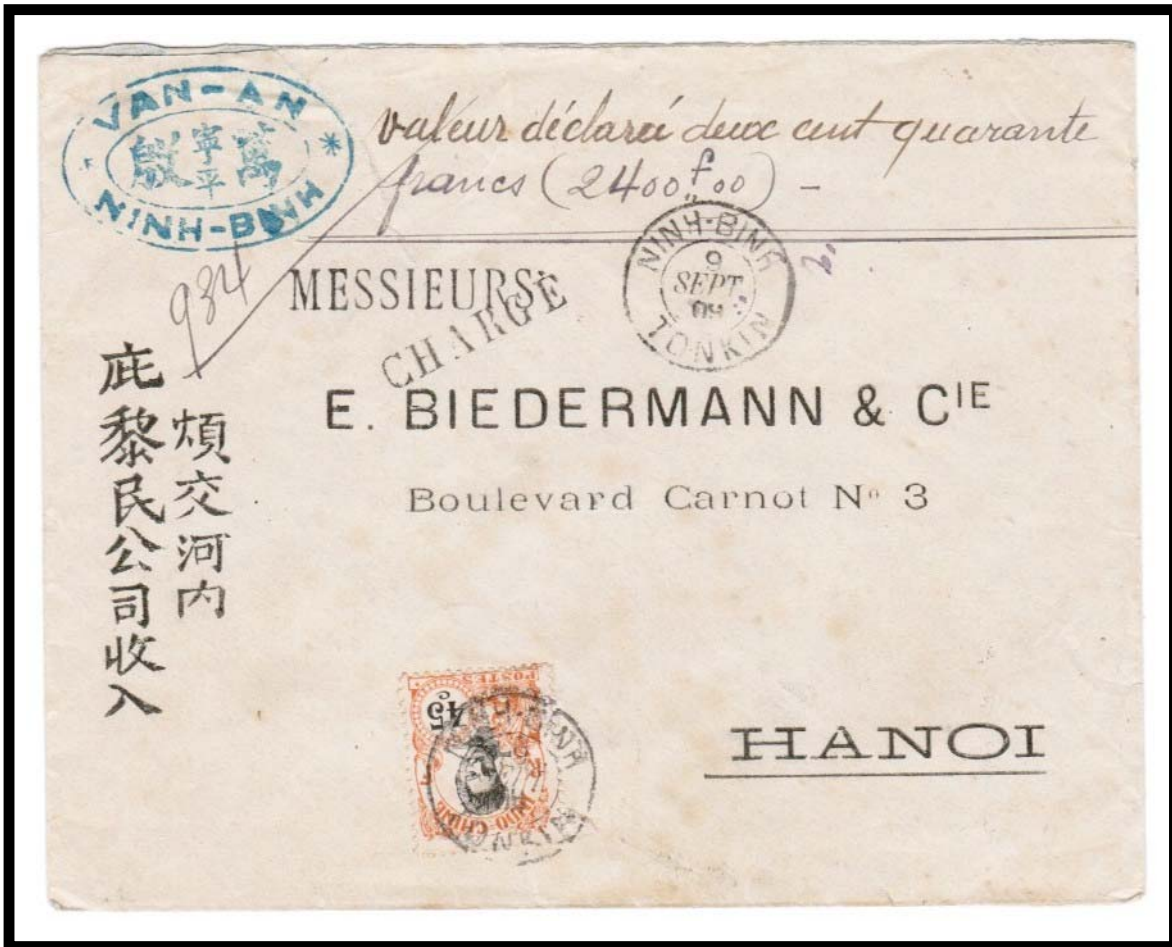 VAN-AN *
萬 寧平
NINH-BINH
valeur déclaré deux cent quarante
francs (2400f00) -
934
NINH-BINH
9
SEPT
09
TONKIN
MESSIEURS
CHARGÉ
E. BIEDERMANN & CIE
Boulevard Carnot No 3
HANOI
煩交河内
庇黎民公司收入
POSTES
45c
INDO-CHINE
NINH-BINH
TONKIN